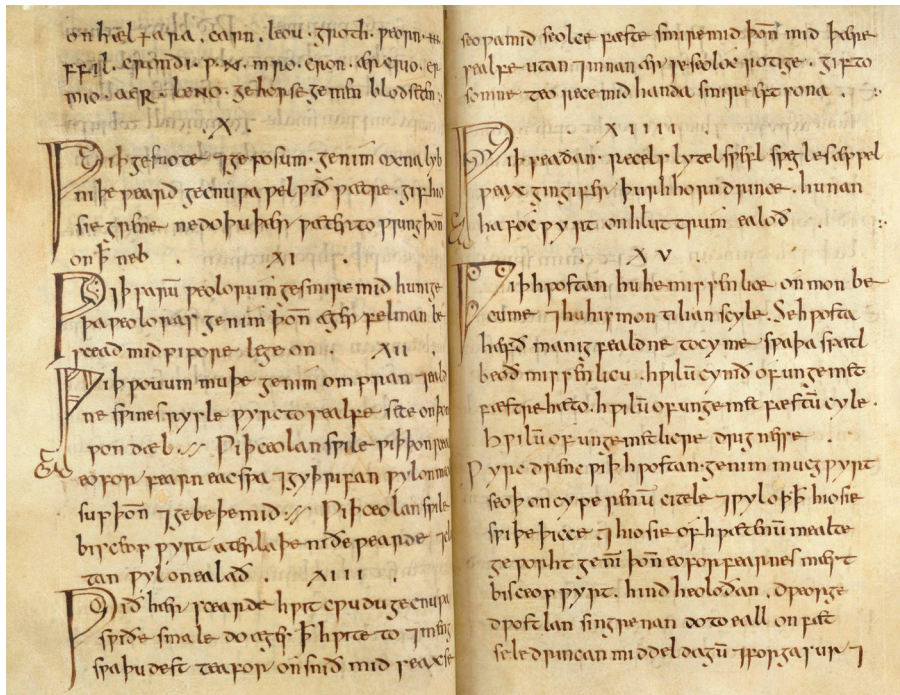 onhæl ƿara . cærn . leou . groth . ƿeorn . ///
ffil . crondi . ƿ . ᛞ . mro . cron . ærcrio . er
mio . aeR . leNo . ge horse ge men blodseten :
.X.
Ƿiþ gesnote ⁊ geposum . genim oxna lyb
niþeƿeard gecnuƿa ƿel ƿið ƿætre . gif hio
sie grene nedo þu þær ƿæter to ƿring þon̄
on ꝥ neb . XI .
Ƿiþ sarū ƿeolorum gesmire mid hunige
þa ƿeoloras genim þon̄ æger felman be
scead mid pipore lege on . XII .
Ƿiþ ƿoum muþe genim ompran ⁊ eald
ne sƿines rysle ƿyrc to sealfe sete on þon
ƿon dæl .,, Ƿiþ ceolan sƿile ƿiþ þon sceal
eofor fearn eac sƿa ⁊ gyþrifan ƿyl on
sup þon̄ ⁊ gebeþe mid .,, Ƿiþ ceolan sƿile
bisceop ƿyrt atterlaþe niðe ƿearde ⁊ cl
tan ƿyl on ealað . XIII .
Ƿið hær scearde hƿit cƿudu gecnuƿa
sƿiðe smale do æges ꝥ hƿite to ⁊ meng
sƿa þu dest teafor onsnið mid seaxse
seoƿa mid seolce fæste smire mid þon̄ mid þære
sealfe utan ⁊ innan ær se seoloc rotige . gif to
somne teo rece mid handa smire eft sona .
XIIII .
Ƿiþ ƿeadan . recels lytel sƿefl sƿegles æppel
ƿeax gingifer þurh horn drince . hunan
hafoc ƿyrt on hluttrum ealoð .
XV .
Ƿiþ hƿostan hu he missenlice on mon be
cume ⁊ hu his mon tilian scyle . Se hƿosta
hæfð manigfealdne tocyme sƿa þa spatl
beoð missenlicu . hƿilū cymð of ungemet
fæstre hæto . hƿilū of ungemet fæstū cyle .
hƿilū of ungemetlicre drignesse .
Ƿyrc drenc ƿiþ hƿostan . genim mucgƿyrt
seoþ on cyperenū citele ⁊ ƿyl oþ ꝥ hio sie
sƿiþe þicce . ⁊ hio sie of hƿætenū mealte
geƿorht gen̄ þon̄ eoforfearnes mæst
bisceopƿyrt . hindheoloðan . dƿeorge
dƿostlan singrenan do to eall on fæt
sele drincan middeldagū ⁊ forga sur ⁊